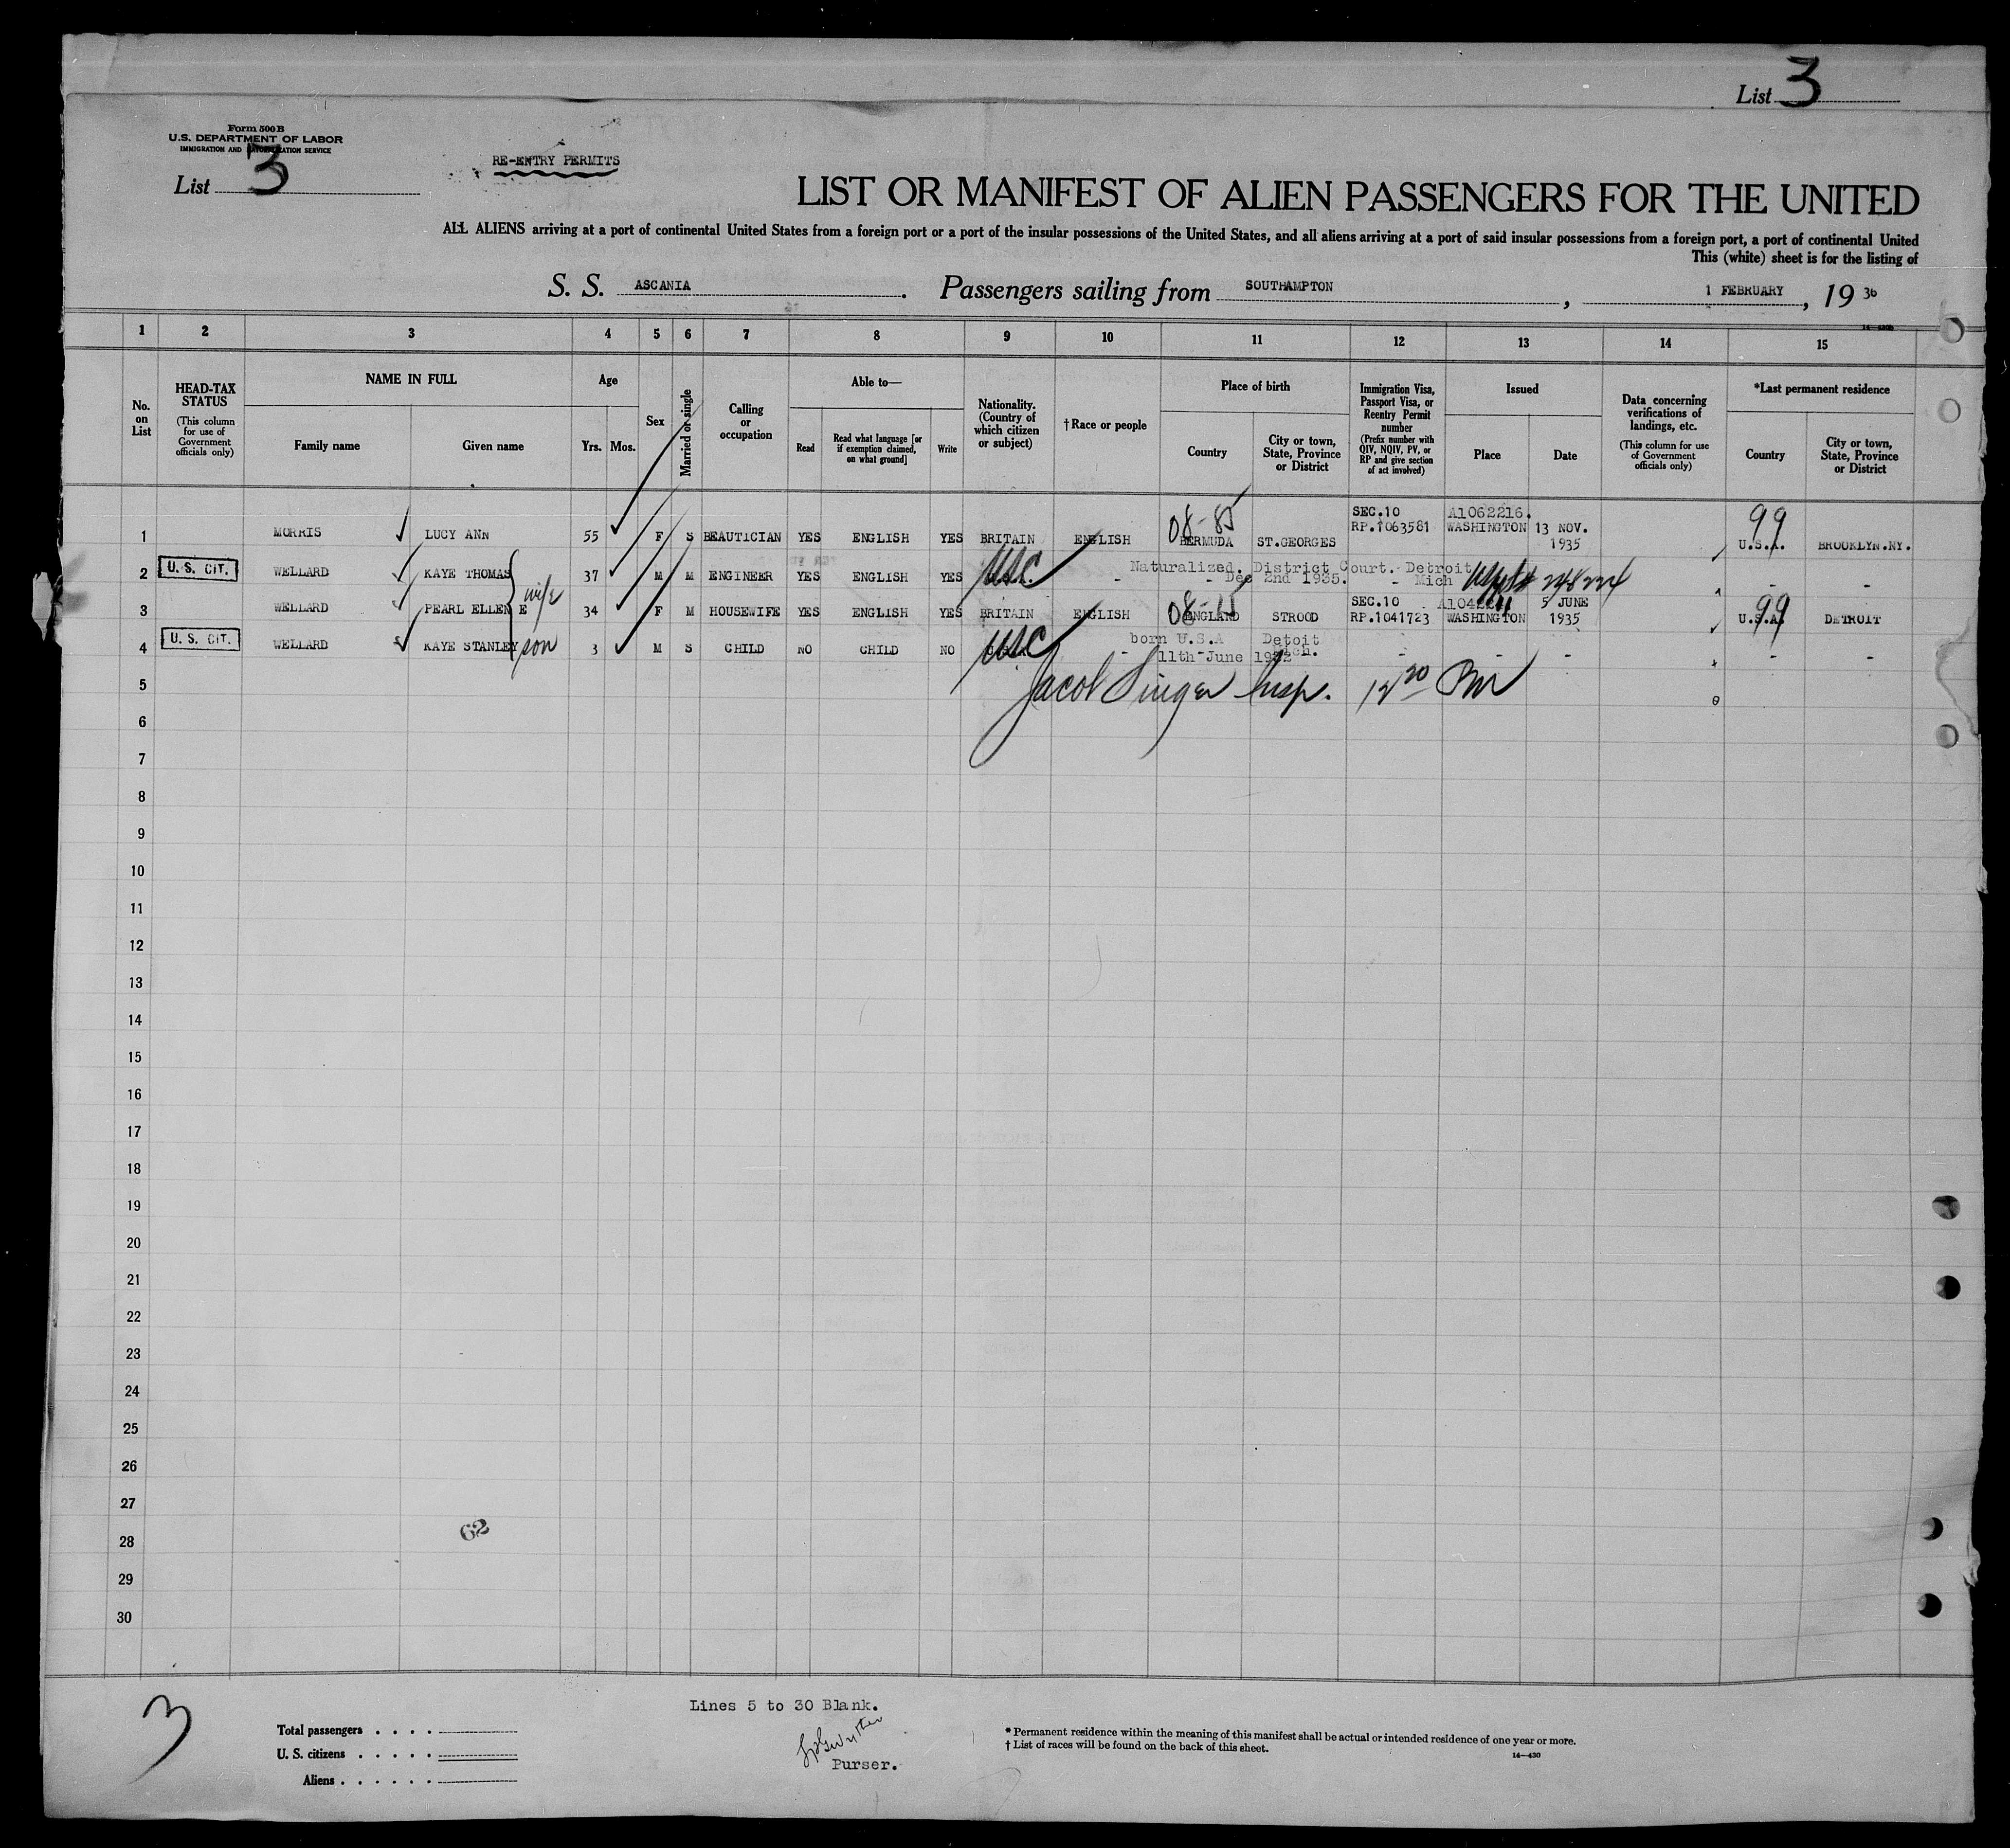 List 3
Form 500B
U.S. DEPARTMENT OF LABOR
IMMIGRATION AND NATURALIZATION SERVICE
List 3
RE-ENTRY PERMITS
LIST OR MANIFEST OF ALIEN PASSENGERS FOR THE UNITED
ALL ALIENS arriving at a port of continental United States from a foreign port or a port of the insular possessions of the United States, and all aliens arriving at a port of said insular possessions from a foreign port, a port of continental United
This (white) sheet is for the listing of
S. S. ASCANIA. Passengers sailing from SOUTHAMPTON, 1 FEBRUARY, 19 36
14—430b
1 2 3 4 5 6 7 8 9 10 11 12 13 14 15
No. on List
HEAD-TAX STATUS (This column for use of Government officials only)
NAME IN FULL
Family name Given name
Age
Yrs. Mos.
Sex
Married or single
Calling or occupation
Able to—
Read Read what language [or if exemption claimed, on what ground] Write
Nationality. (Country of which citizen or subject)
†Race or people
Place of birth
Country City or town, State, Province or District
Immigration Visa, Passport Visa, or Reentry Permit number (Prefix number with QIV, NQIV, PV, or RP and give section of act involved)
Issued
Place Date
Data concerning verifications of landings, etc. (This column for use of Government officials only)
*Last permanent residence
Country City or town, State, Province or District
08-85 SEC.10 A1062216. 99
1 MORRIS LUCY ANN 55 F S BEAUTICIAN YES ENGLISH YES BRITAIN ENGLISH BERMUDA ST.GEORGES RP.1063581 WASHINGTON 13 NOV. 1935 U.S.A. BROOKLYN.NY.
2 U. S. CIT. WELLARD KAYE THOMAS 37 M M ENGINEER YES ENGLISH YES USC - Naturalized. District Court. Detroit
- Dec 2nd 1935. - Mich - -
wife
3 WELLARD PEARL ELLEN E 34 F M HOUSEWIFE YES ENGLISH YES BRITAIN ENGLISH 08- ENGLAND STROOD SEC.10 RP.1041723 WASHINGTON 5 JUNE 1935 99 U.S.A. DETROIT
4 U. S. CIT. WELLARD KAYE STANLEY son 3 M S CHILD NO CHILD NO USC - born U.S.A Detoit
11th June 1932 - - - - -
5 Jacob Singer Insp. 12 20 PM
6
7
8
9
10
11
12
13
14
15
16
17
18
19
20
21
22
23
24
25
26
27
62
28
29
30
3
Lines 5 to 30 Blank.
Purser.
Total passengers
U. S. citizens
Aliens
* Permanent residence within the meaning of this manifest shall be actual or intended residence of one year or more.
† List of races will be found on the back of this sheet.
14—430